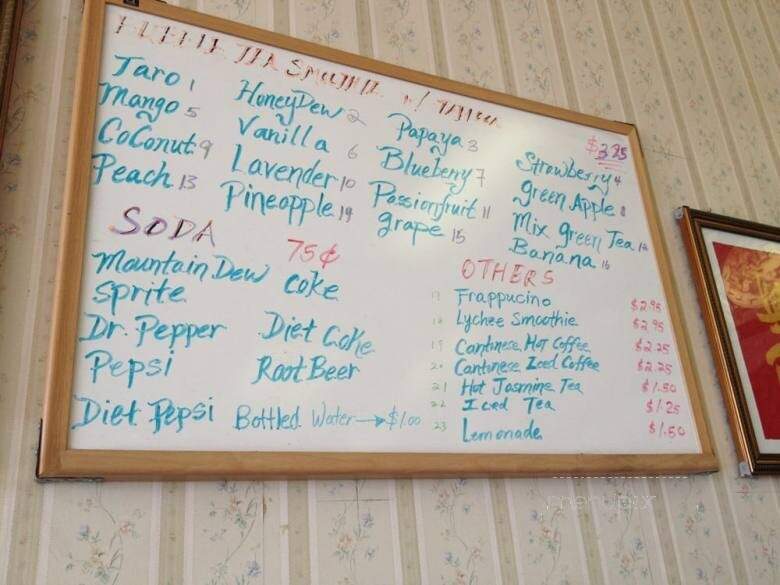 TEA SMOOTHIE w/
$3.25
Taro 1 HoneyDew 2 Papaya 3 Strawberry 4
Mango 5 Vanilla 6 Blueberry 7 Green Apple 8
CoConut 9 Lavender 10 Passionfruit 11 Mix Green Tea 12
Peach 13 Pineapple 14 grape 15 Banana 16
SODA 75¢
Mountain Dew Coke
Sprite
Dr. Pepper Diet Coke
Pepsi Root Beer
Diet Pepsi Bottled Water → $1.00
OTHERS
17 Frappucino $2.95
18 Lychee Smoothie $2.95
19 Cantinese Hot Coffee $2.25
20 Cantinese Iced Coffee $2.25
21 Hot Jasmine Tea $1.50
22 Iced Tea $1.25
23 Lemonade $1.50
menupix